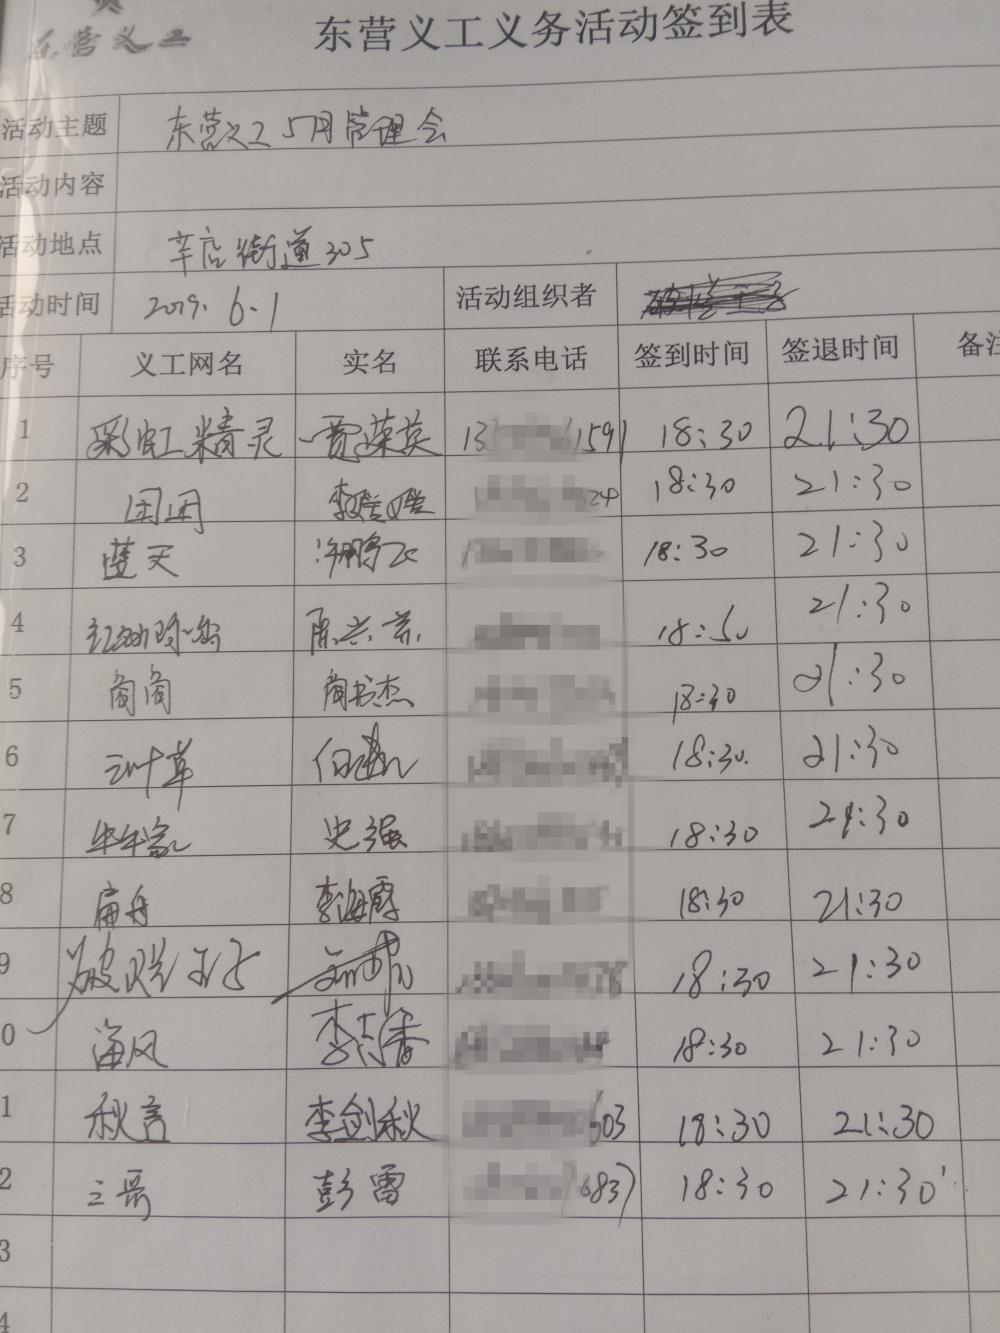 东营义工
东营义工义务活动签到表
活动主题 东营义工5月管理会
活动内容
活动地点 辛店街道305
活动时间 2019.6.1 活动组织者
序号 义工网名 实名 联系电话 签到时间 签退时间 备注
1 彩虹精灵 贾荣英 1591 18:30 21:30
2 困困 324 18:30 21:30
3 蓝天 许鹏飞 18:30 21:30
4 18:50 21:30
5 商商 商书杰 18:30 21:30
6 三叶草 18:30. 21:30
7 牛牛 史强 18:30 21:30
8 扁舟 李海霞 18:30 21:30
9 18:30 21:30
0 海风 李志香 18:30 21:30
1 秋言 李剑秋 603 18:30 21:30
2 三哥 彭雷 6837 18:30 21:30
3
4